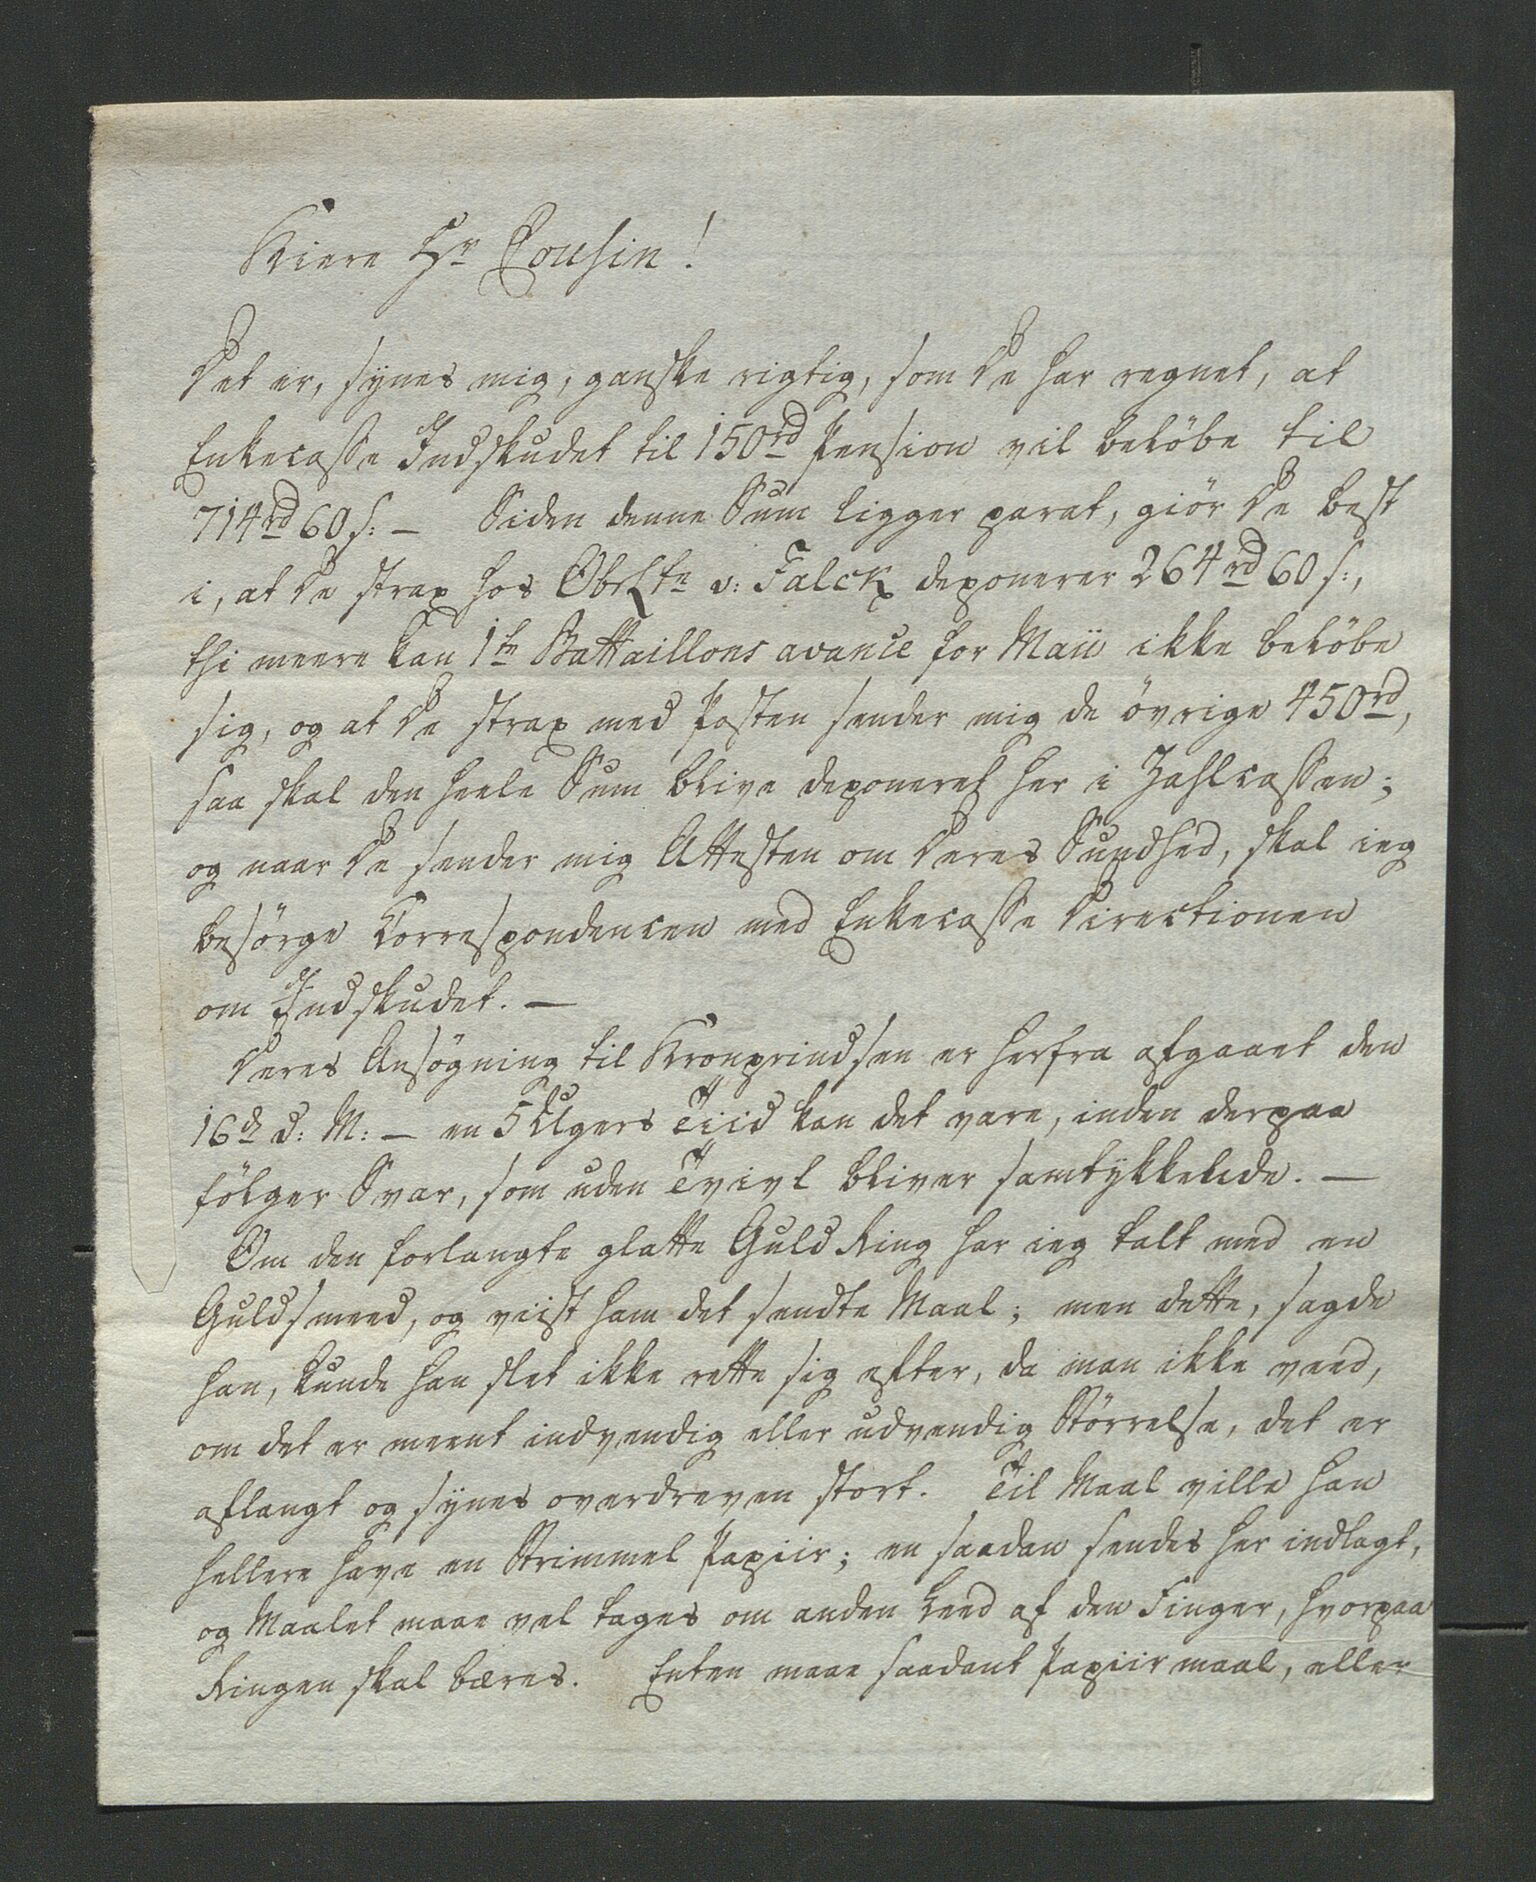 Kiere Hr Cousin!
Det er, synes mig, ganske rigtig, som De har regnet, at
Enkecasse Indskudet til 150rd Pension vil belöbe til
714rd 60 s: — Siden denne Sum ligger parat, giör De best
i, at De strax hos ObrLtn v: Falck deponerer 264rd 60 s:,
thi meere kan 1te Battaillons avance for Maii ikke belöbe
sig, og at De strax med Posten sender mig de övrige 450rd,
saa skal den heele Sum blive deponeret her i Zahlcassen;
og naar De sender mig Attesten om Deres Sundhed, skal ieg
besörge Correspondencen med Enkecasse Directionen
om Indskudet. —
Deres Ansögning til Kronprindsen er herfra afgaaet den
16d d: M: — en 5 Ugers Tiid kan det vare, inden derpaa
fölger Svar, som uden Tvivl bliver samtykkelide. —
Om den forlangte glatte Guld Ring har ieg talt med en
Guldsmeed, og viist ham det sendte Maal; men dette, sagde
han, kunde han slet ikke rette sig efter, da man ikke veed,
om det er meent indvendig eller udvendig Störrelse, det er
aflangt og synes overdreven stort. Til Maal ville han
hellere have en Strimmel Papiir; en saadan sendes her indlagt,
og Maalet maae vel tages om anden Leed af den Finger, hvorpaa
Ringen skal bæres. Enten maae saadant Papiir maal, eller